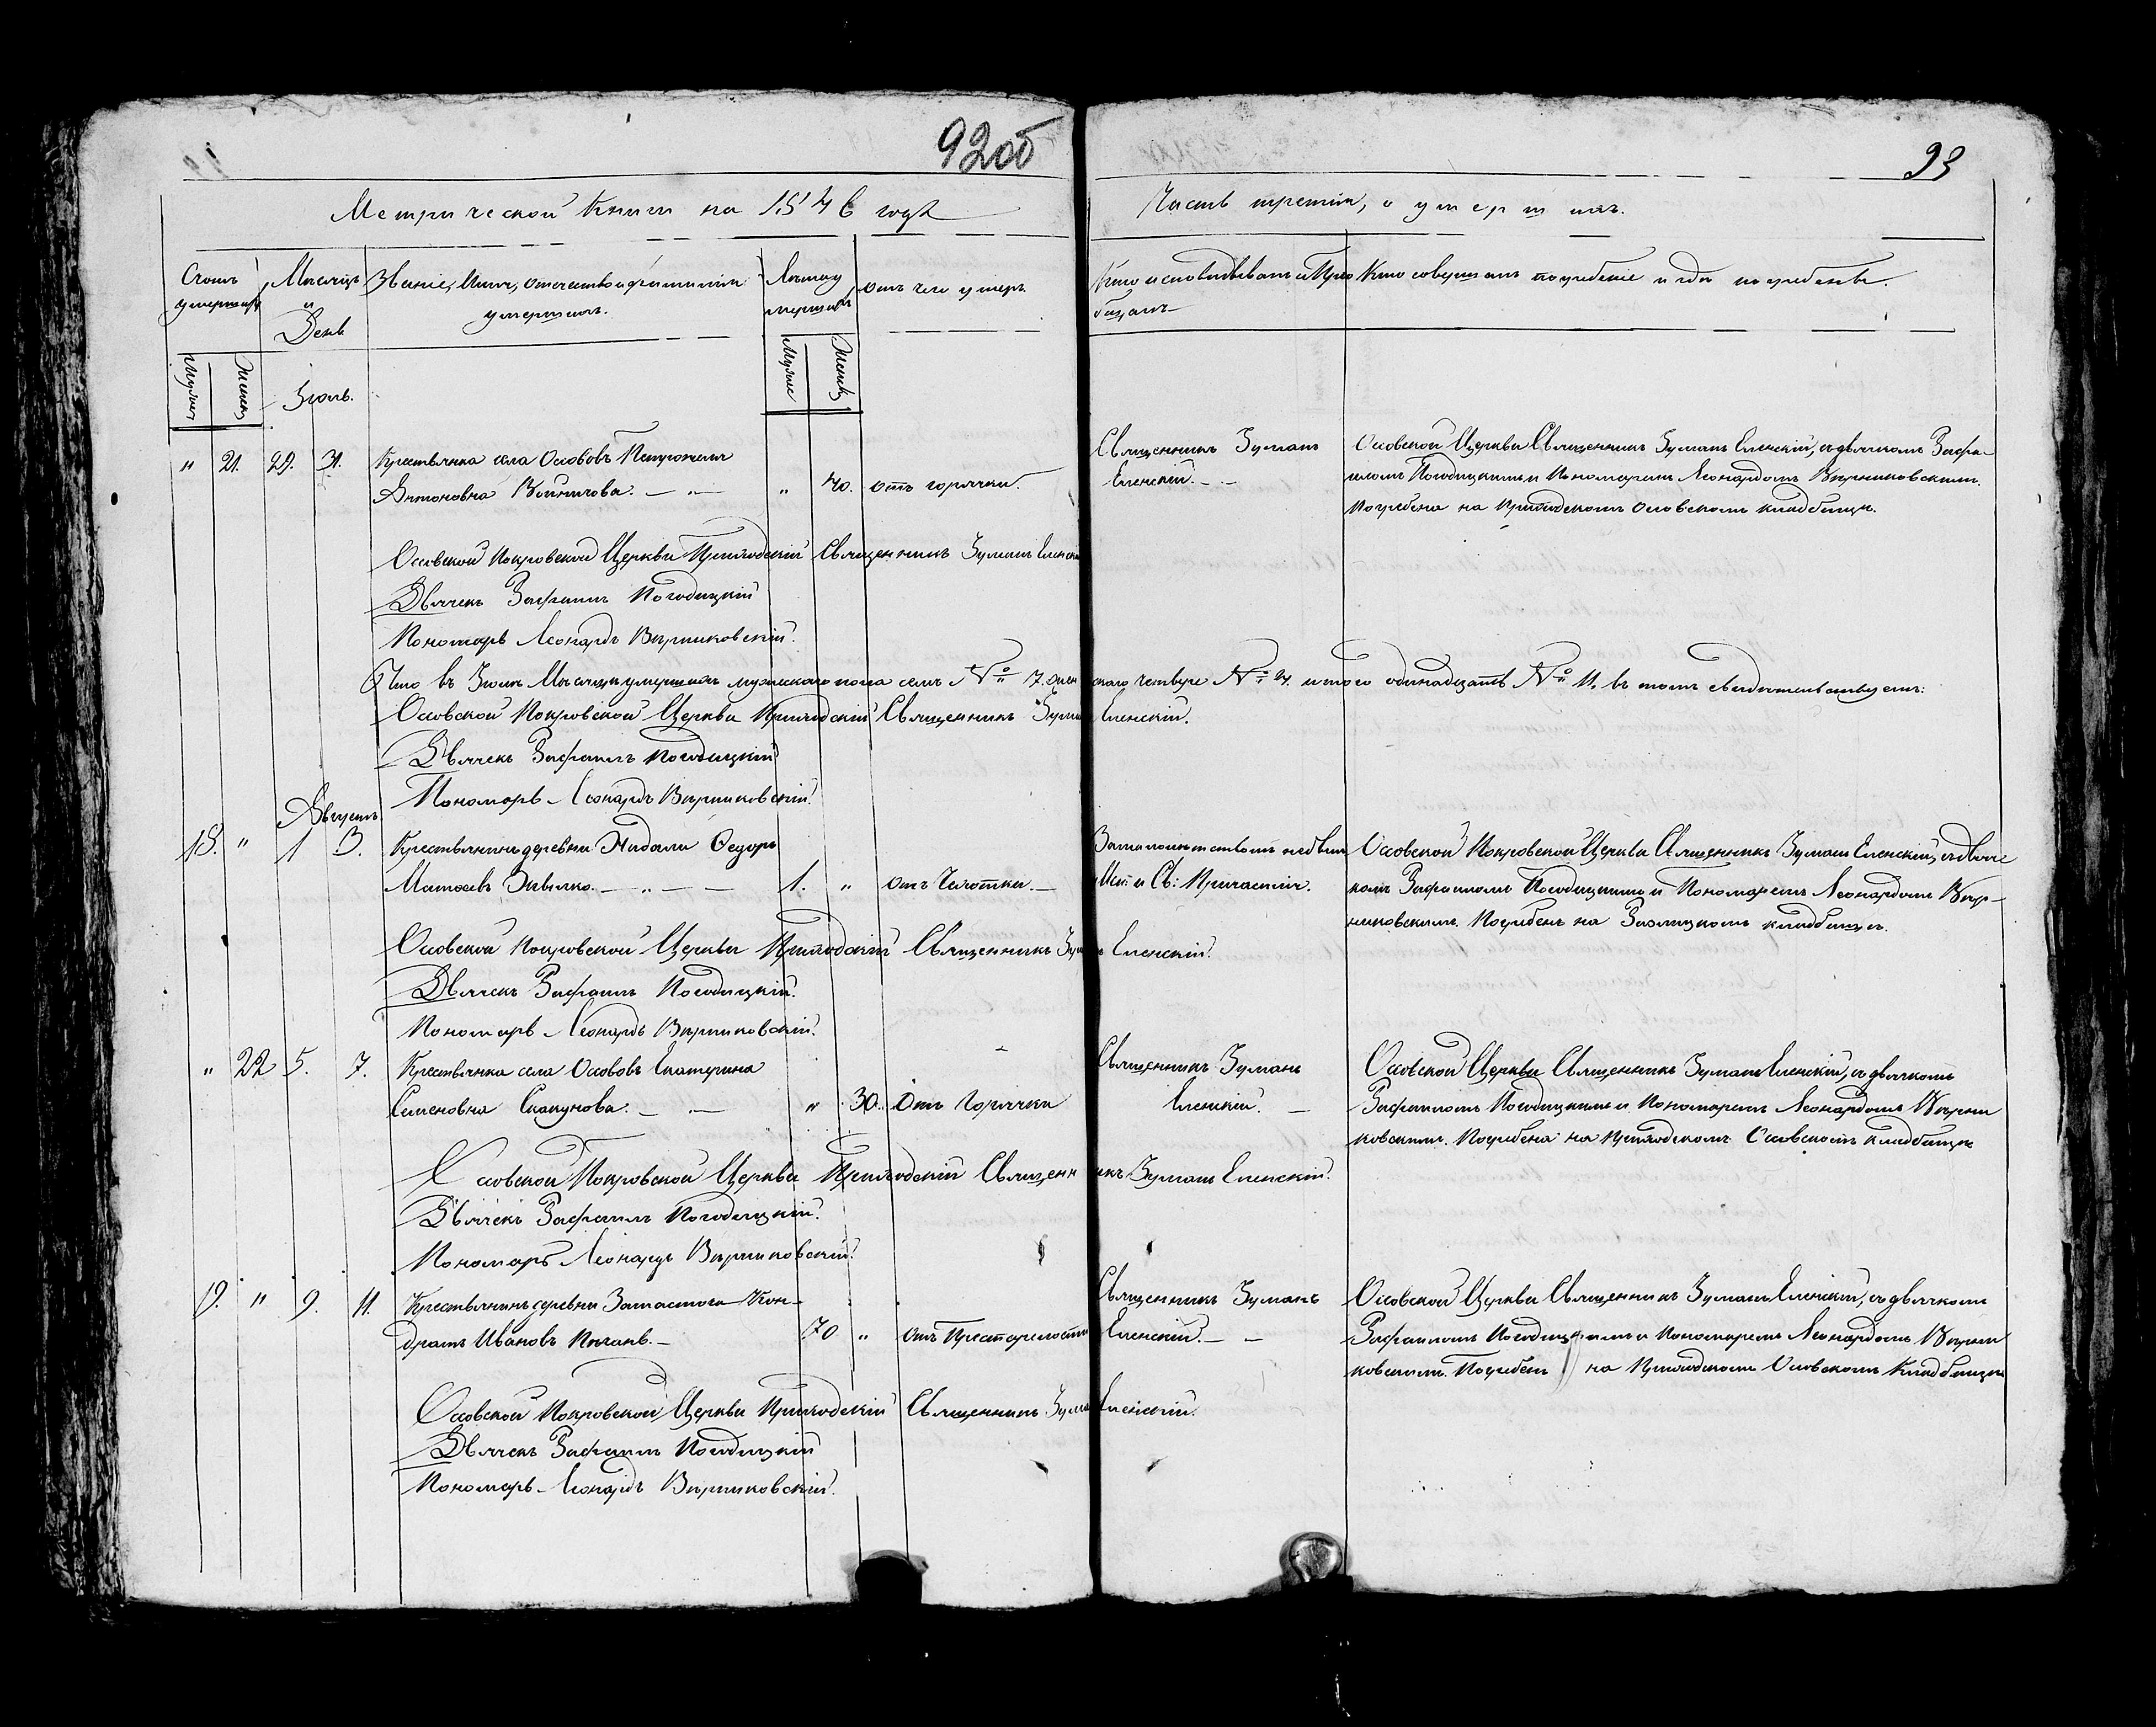 92об
93
Метрической Книги на 1846 годъ
Часть третія, о умершихъ.
Счотъ умершихъ
Мѣсяцъ и День
Званіе, Имя, Отечество и фамилія умершихъ.
Лѣта умершихъ
отъ чего умеръ
Кто исповѣдывалъ и Прiобщалъ
Кто совершалъ погребеніе и гдѣ погребены.
Мужеска
Женска
Мужес
Женска
Іюль.
" 21. 29. 31. Крестьянка села Ососовъ
Антоновна Войничова. — " — " 40. отъ горячки.
Священникъ Іуліанъ
Еленскій. — —
Осовской Церкви Священникъ Іуліанъ Еленскій, съ дьячкомъ Рафа-
иломъ Погодицкимъ и Пономаремъ Леонардомъ Вѣрниковскимъ.
Погребена на приходскомъ Осовскомъ кладбищѣ.
Осовской Покровской Церкви Приходскій Священникъ Іуліанъ Еленскій
Дьячекъ Рафаилъ Погодицкій
Пономарь Леонардъ Вѣрниковскій.
Что въ Іюлѣ Мѣсяцѣ умершихъ мужескаго пола семь № 7. женскаго четыре № 4. итого одинадцать № 11. въ томъ свидѣтельствуемъ:
Осовской Покровской Церкви Приходскій Священникъ Іуліанъ Еленскій.
Дьячекъ Рафаилъ Погодицкій
Пономарь Леонардъ Вѣрниковскій.
Августъ
18. " 1 3. Крестьянинъ деревни Федоръ
Матѳеевъ — " — — 1. " отъ Чахотки. —
За малолѣтствомъ не былъ
и Св: Причастія.
Осовской Покровской Церкви Священникъ Іуліанъ Еленскій, съ дьяч-
комъ Рафаиломъ Погодицкимъ и Пономаремъ Леонардомъ Вѣр-
никовскимъ. Погребенъ на кладбищѣ.
Осовской Покровской Церкви Приходскій Священникъ Іуліанъ Еленскій.
Дьячекъ Рафаилъ Погодицкій.
Пономарь Леонардъ Вѣрниковскій.
" 22 5. 7. Крестьянка села Ососовъ Екатерина
Семеновна Скакунова. — — " 30. Отъ Горячки
Священникъ Іуліанъ
Еленскій. —
Осовской Церкви Священникъ Іуліанъ Еленскій, съ дьячкомъ
Рафаиломъ Погодицкимъ и Пономаремъ Леонардомъ Вѣрни
ковскимъ. Погребена на приходскомъ Осовскомъ кладбищѣ
Осовской Покровской Церкви Приходскій Священникъ Іуліанъ Еленскій.
Дьячекъ Рафаилъ Погодицкій.
Пономарь Леонардъ Вѣрниковскій.
19. " 9. 11. Крестьянинъ деревни Кон-
дратъ Ивановъ — 70 " Отъ Престарелости
Священникъ Іуліанъ
Еленскій. — —
Осовской Церкви Священникъ Іуліанъ Еленскій, съ дьячкомъ
Рафаиломъ Погодицкимъ и Пономаремъ Леонардомъ Вѣрни
ковскимъ. Погребенъ на приходскомъ Осовскомъ Кладбищѣ
Осовской Покровской Церкви Приходскій Священникъ Іуліанъ Еленскій.
Дьячекъ Рафаилъ Погодицкій
Пономарь Леонардъ Вѣрниковскій.